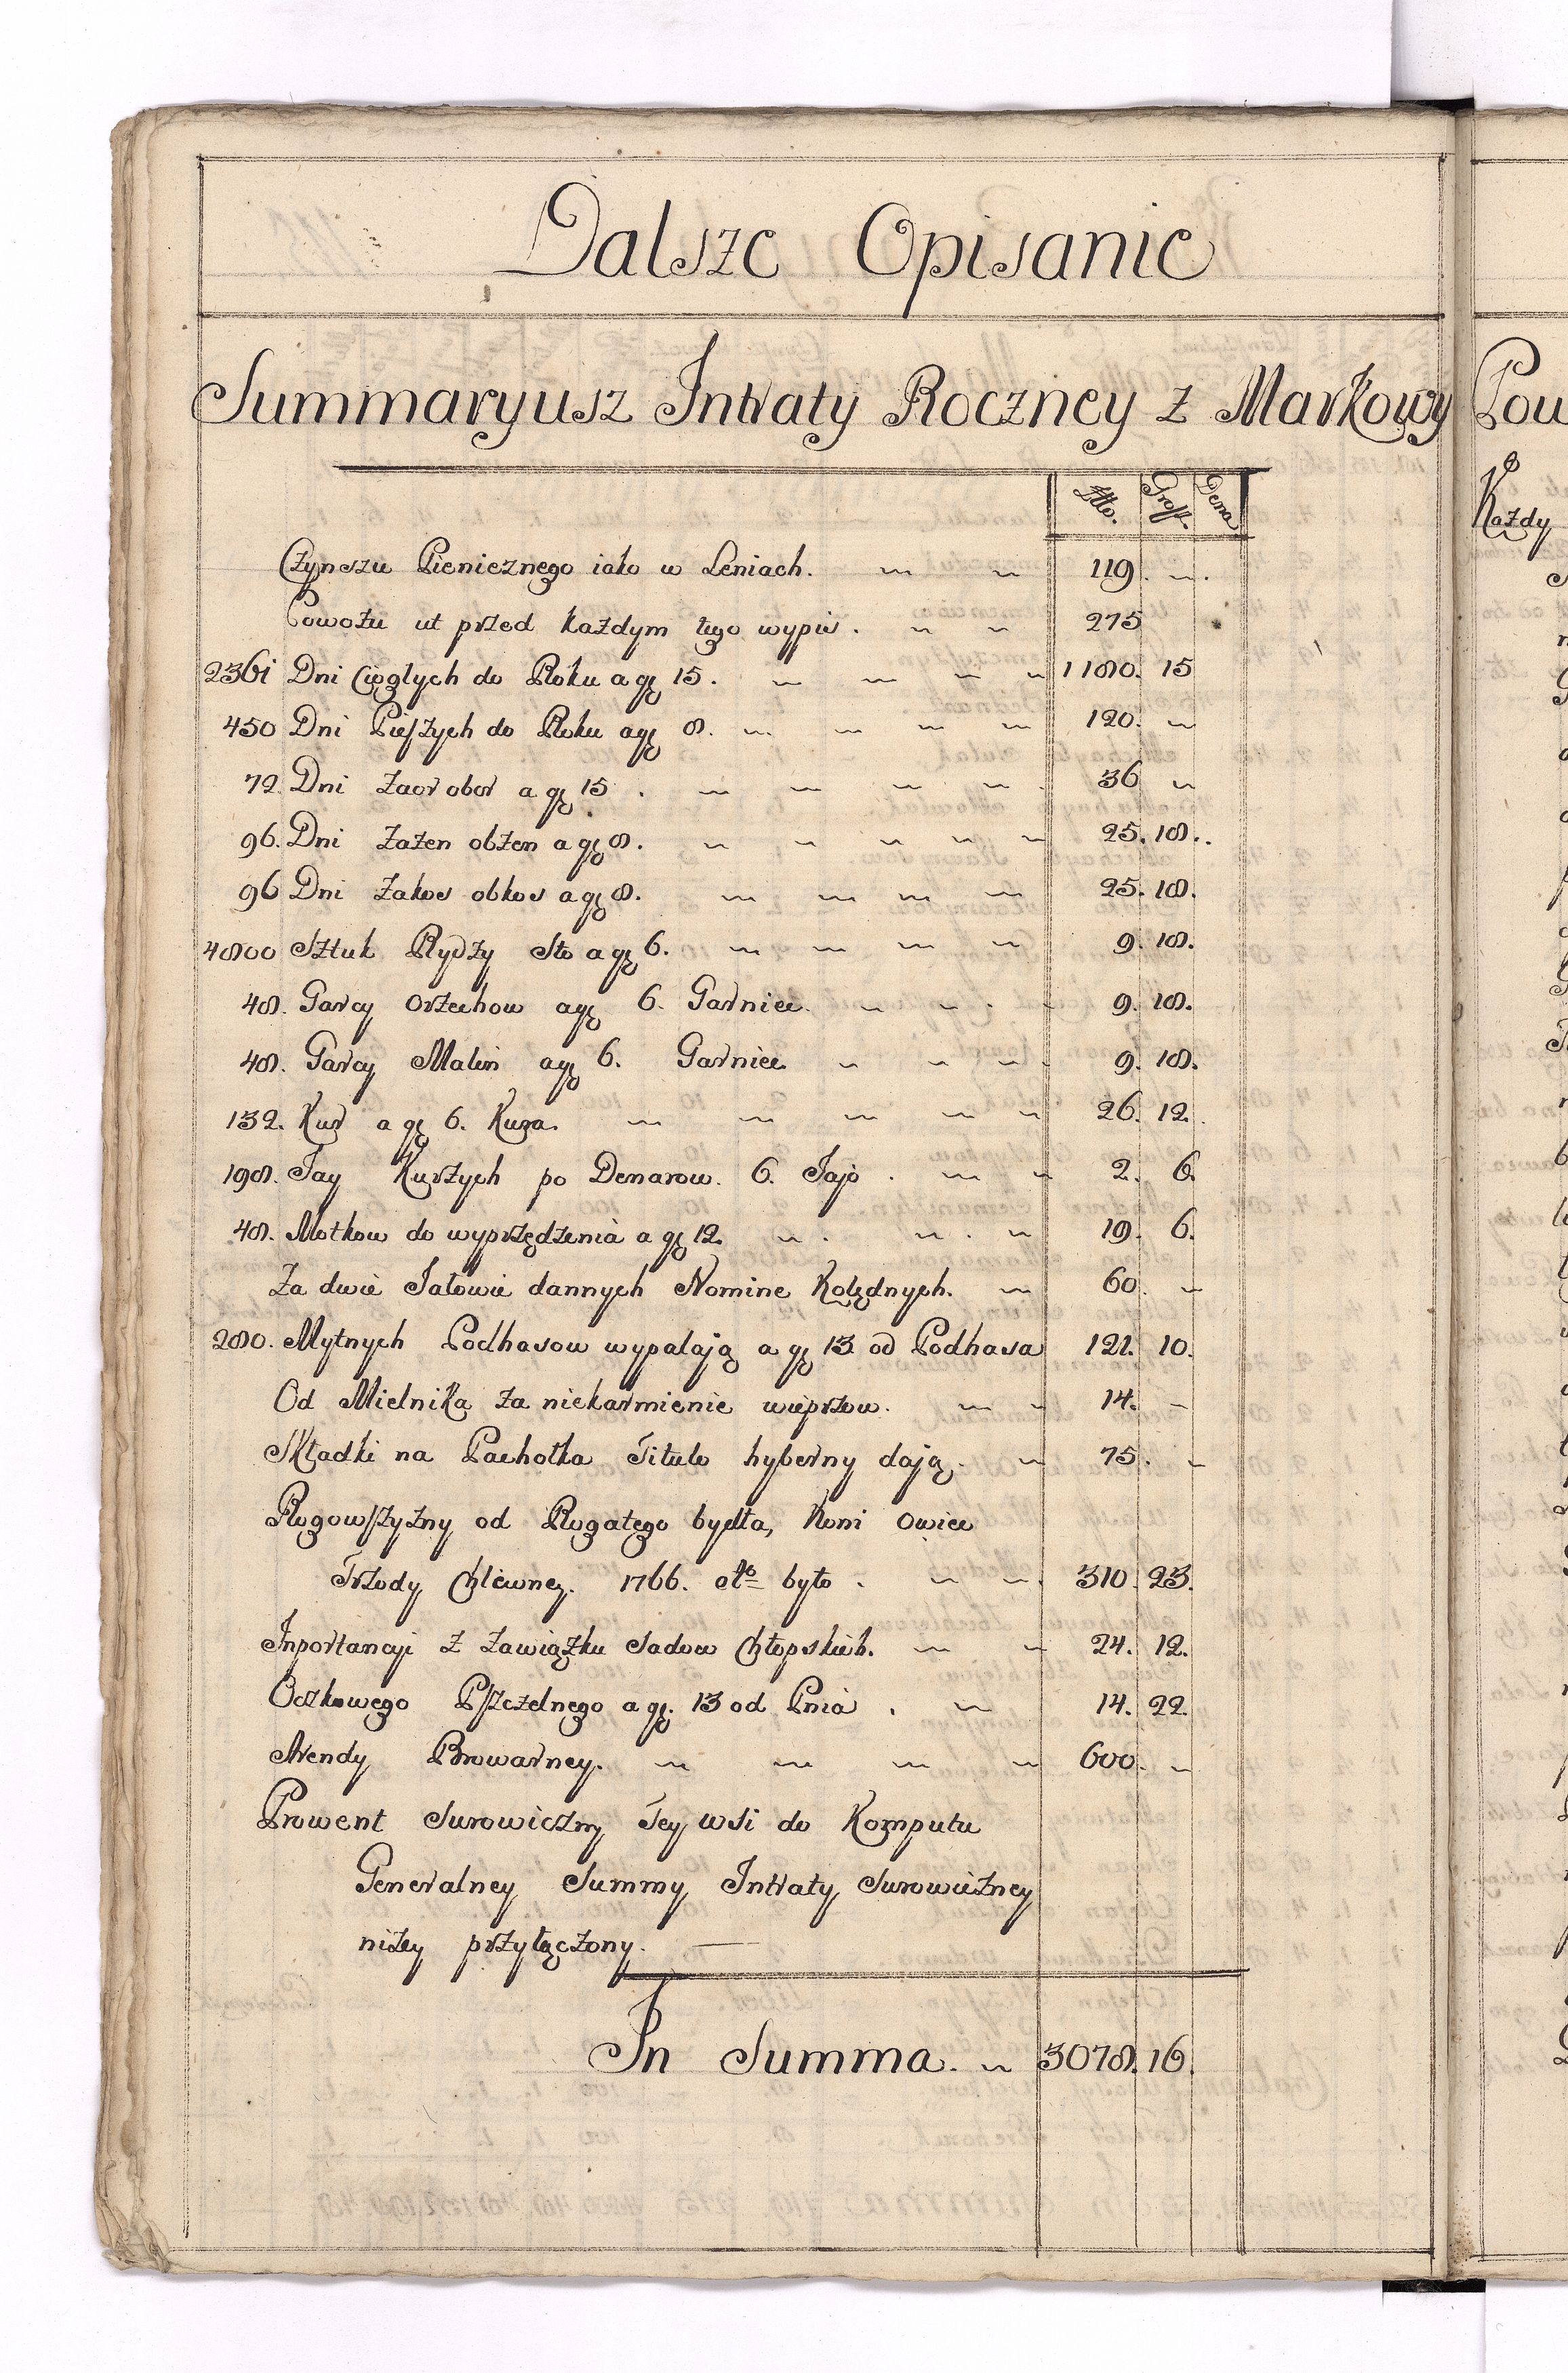 Dalsze Opisanie
Summaryusz Intraty Roczney z Markowy
Złto. Gross. Dena
Czynszu Pienicznego iako w Leniach. 119. ~.
Powozu ut przed każdym tego wypis. 275
2361 Dni Ciągłych do Roku a gę 15. 1180. 15
450 Dni Pieszych do Roku a gę 8. 120. ~
72. Dni Zaor obor a gę 15. 36 ~
96. Dni Zażen obżen a gę 8. 25. 18.
96 Dni Zakos obkos a gę 8. 25. 18.
4800 Sztuk Rydzy Sto a gę 6. 9. 18.
48. Garcy Orzechow a gę 6. Garniec. 9. 18.
48. Garcy Malin a gę 6. Garniec 9. 18.
132. Kur a gę 6. Kura. 26. 12.
198. Jay Kurzych po Denarow. 6. Jajo. 2. 6.
48. Motkow do wyprzędzenia a gę 12. 19. 6.
Za dwie Jałowie dannych Nomine Kolędnych. 60. ~
280. Mytnych Podhasow wypalają a gę 13 od Podhasa 121. 10.
Od Mielnika za niekarmienie wieprzow. 14. ~
Składki na Pachołka Titulo hyberny dają. 75. ~
Rogowszyzny od Rogatego bydła, Koni Owiec
Trzody Chlewney. 1766. ato było. 310. 23.
Inportancji z Zawiązku Sadow Chłopskich. 24. 12.
Oczkowego Pszczelnego a gę. 13 od Pnia. 14. 22.
Arendy Browarney. 600. ~
Prowent Surowiczny Tey wsi do Komputu
Generalney Summy Intraty Surowiczney
niżey przyłączony.
In Summa. ~ 3078. 16.
Pow
Każdy